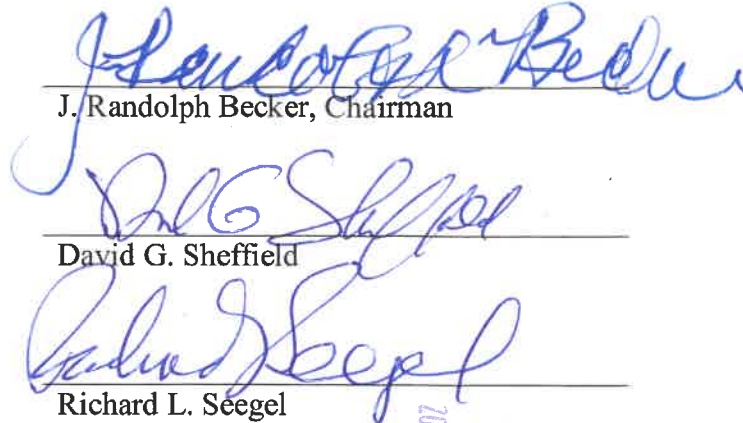 J. Randolph Becker
J. Randolph Becker, Chairman
David G Sheffield
David G. Sheffield
Richard L Seegel
Richard L. Seegel
20